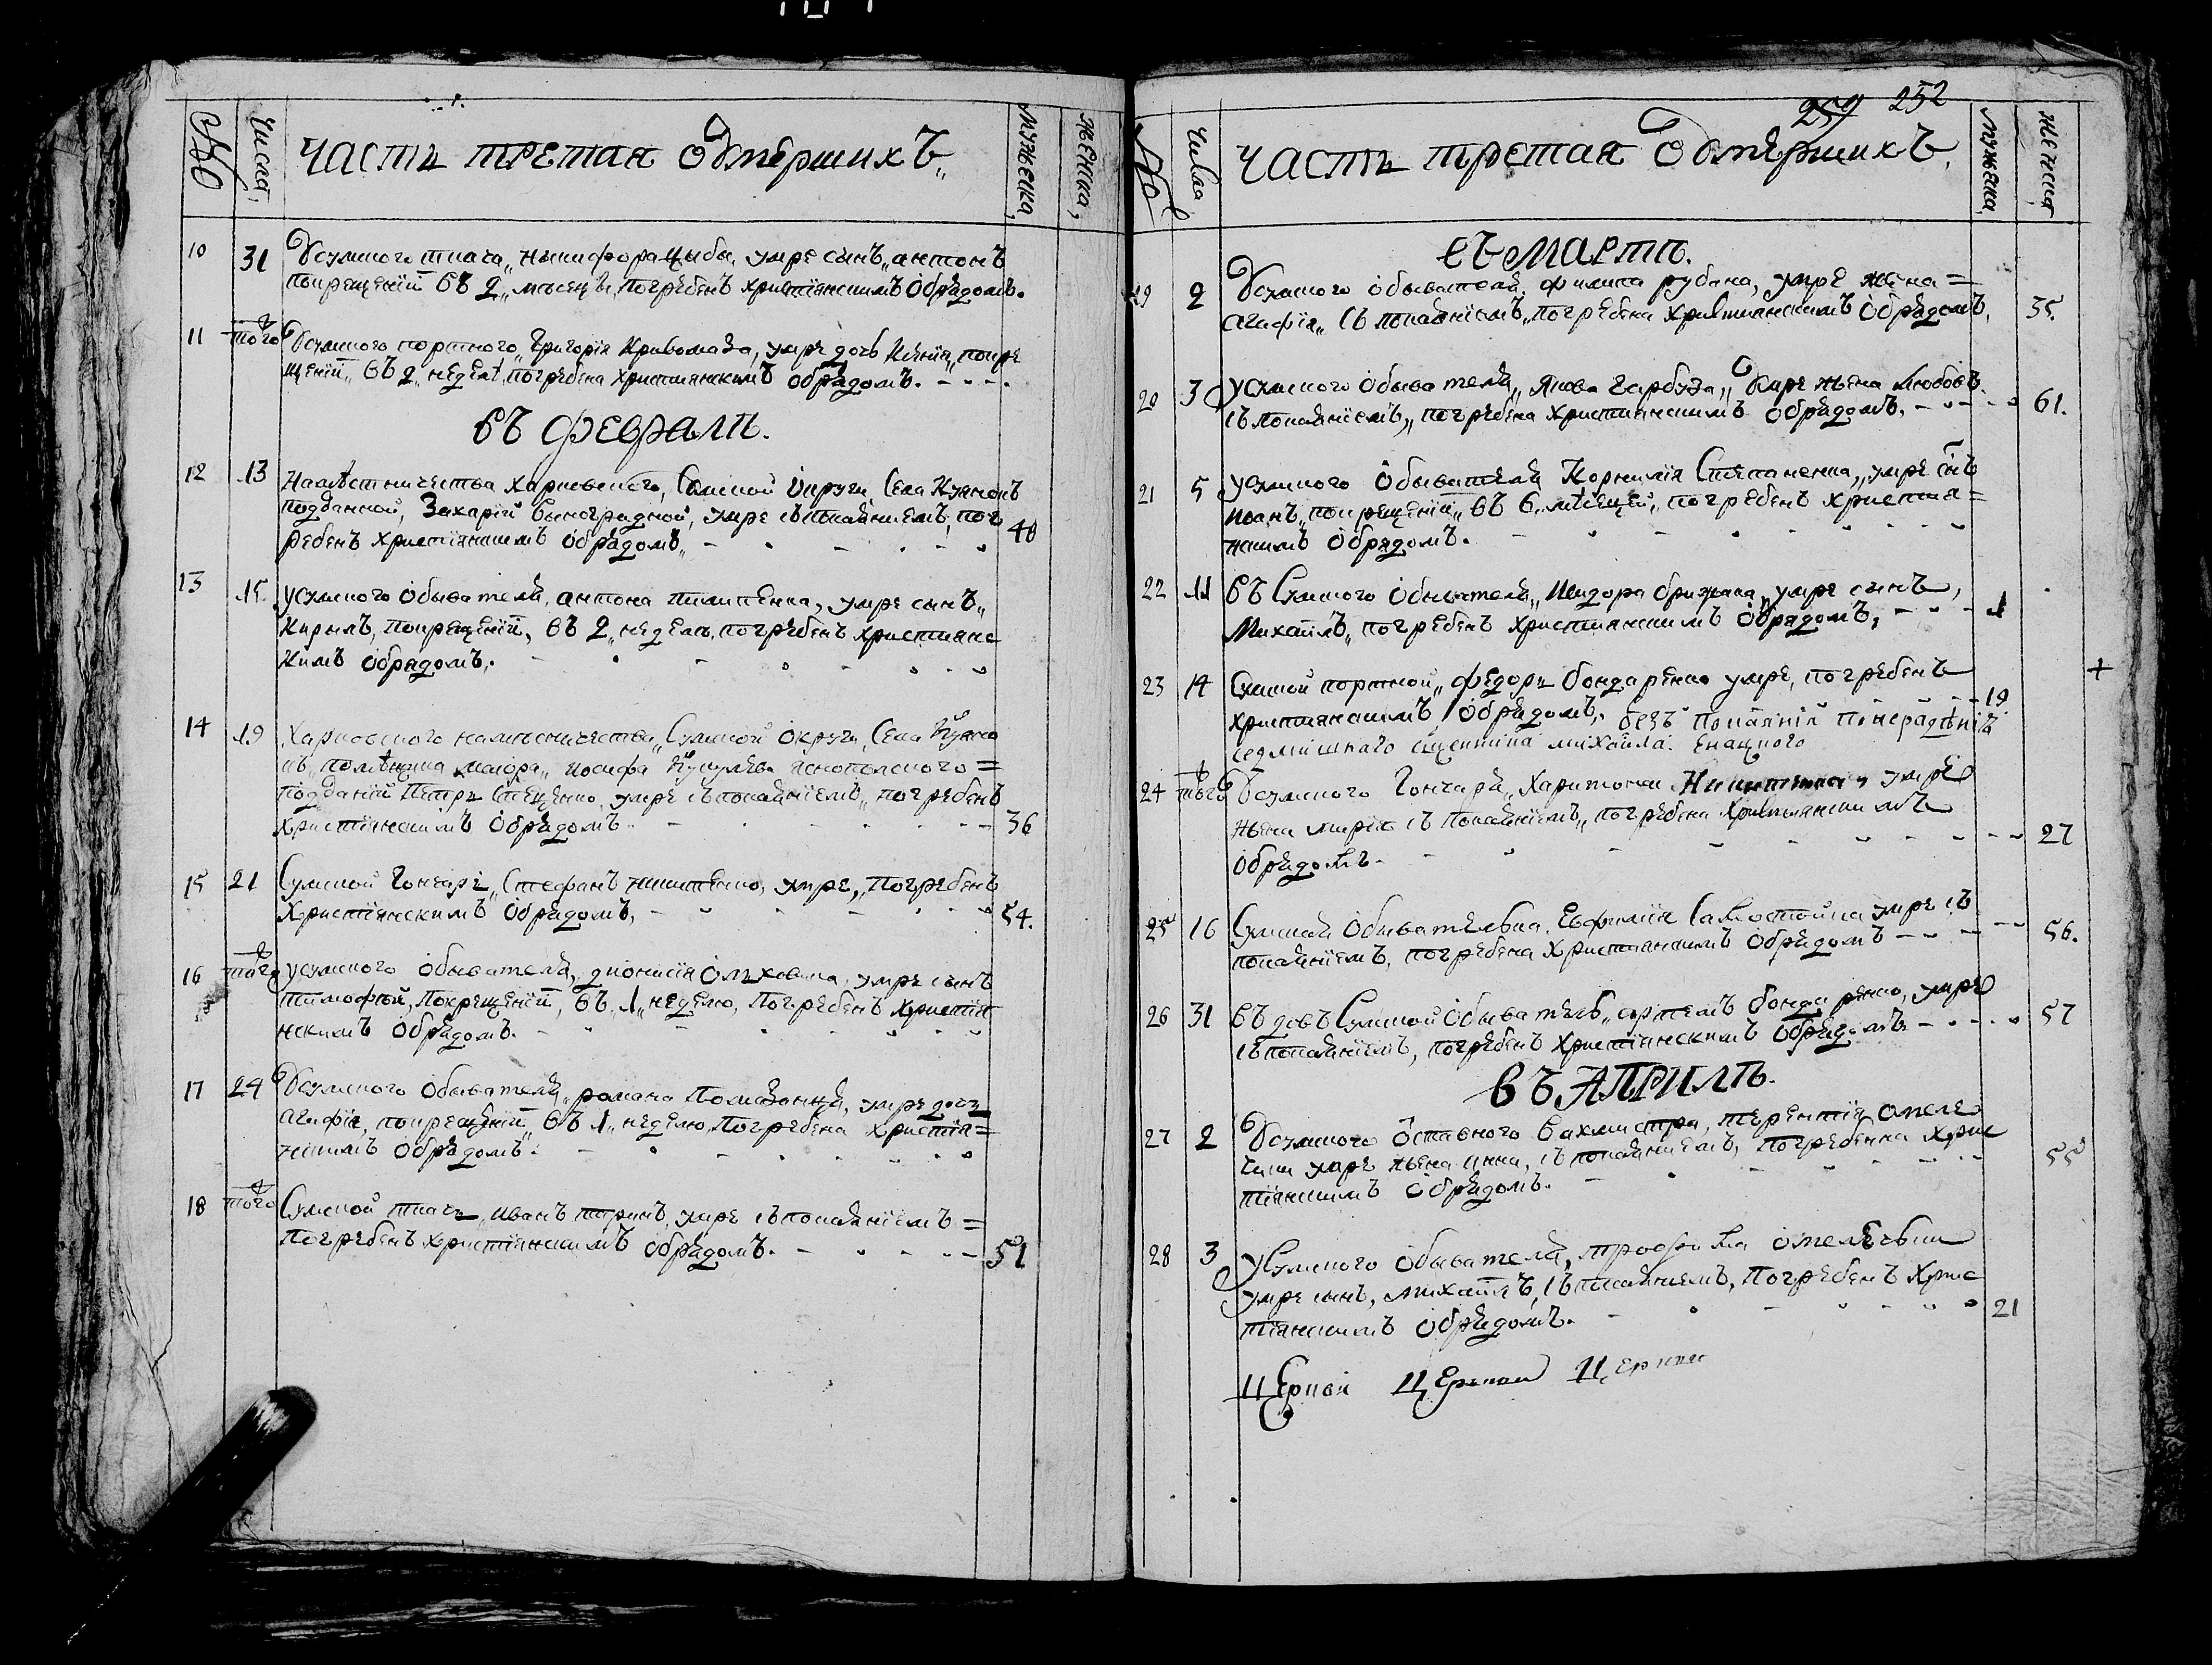 №
Числа,
ЧАСТЬ ТРЕТАЯ Обмершихъ
мужеска,
женска,
10 31 Усумского ткача, Никифора Цыбы, умре сынъ антонъ
покрещенїи въ 2 месецы, погребенъ христїянскимъ обрядомъ.
11 того Усумского портного, Григорїя Кривомаза, умре дочь Ксенїя, покре
щенїи, въ 2 недели, погребена христїянскимъ обрядомъ.
въ феврале.
12 13 Наместничества Харковского, Сумской округи, Села Куяновъ
подданной, Захарїй Виноградной, умре съ покаянием, пог
ребенъ христїянскимъ обрядомъ, 40
13 15 усумского обывателя, антона пилипенка, умре сынъ,
Кирилъ, покрещенїи, въ 2 недели, погребенъ христианс
кимъ обрядомъ.
14 19 Харковского наместничества, Сумской округи, Села Куяно
въ, помещика маїора, Иосифа яснополского =
подданїй Петръ Стеценко, умре съ покаянїемъ, погребенъ
христїянскимъ обрядомъ. 36
15 21 Сумской Гончаръ, Стефанъ никитенко, умре, погребенъ
Христїянскимъ обрядомъ, 54.
16 того усумского обывателя, дионисїя умре сынъ
тимофей, покрещенїи, въ 1 неделю, погребенъ христїя
нскимъ обрядомъ.
17 24 Усумского обывателя, романа Помазанца, умре дочь
Агафїя, покрещенїи, въ 1 неделю, погребена христїя=
нскимъ обрядомъ.
18 того Сумской ткачъ, иванъ умре съ покаянїемъ =
погребенъ христїянскимъ обрядомъ. 51
259 252
№
Числа
ЧАСТЬ третая Обмершихъ,
мужеска,
женска
въ МАРТѢ.
19 2 Усумского обывателя, филипа рубана, умре жена =
агафїя, съ покаянїемъ, погребена христианскимъ обрядомъ, 35.
20 3 усумского обывателя, Якова гарбуза, умре жена Любовъ
съ покаянїемъ, погребена христианскимъ обрядомъ, 61.
21 5 усумского обывателя Корнилїя Степаненка, умре снъ
иоанъ, покрещенїи, въ 6 месецей, погребенъ христия=
нскимъ обрядомъ.
22 11 въ Сумского обывателя, Исидора умре сынъ,
Михаилъ, погребенъ христианскимъ обрядомъ, 1
23 14 Сумской портной, федоръ бондаренко умре, погребенъ
христианскимъ обрядомъ, безъ покаянїя по нерадѣнїю 19
седмишнаго сщенника михаила
24 того Усумского Гончаря, Харитона Никитенка умре
жена марїя съ покаянїемъ, погребена Христианскимъ
обрядомъ. 27
25 16 Сумская обывателька, Евфимїя умре съ
покаянїемъ, погребена христианскимъ обрядомъ 56.
26 31 въдовъ Сумской обыватель, артемъ бондаренко, умре
съ покаянїемъ, погребенъ христїянскимъ обрядомъ 57
въ АПРИЛѢ.
27 2 Усумского оставного вахмистра, терентїя омеле
чки умре жена анна, съ покаянїемъ, погребенна хрис
тїянскимъ обрядомъ. 55
28 3 усумского обывателя, трофима омелечки
умре сынъ, михаилъ, съ покаянїемъ, погребенъ хрис
тїянскимъ обрядомъ. 21
Церкви Церкви Церкви